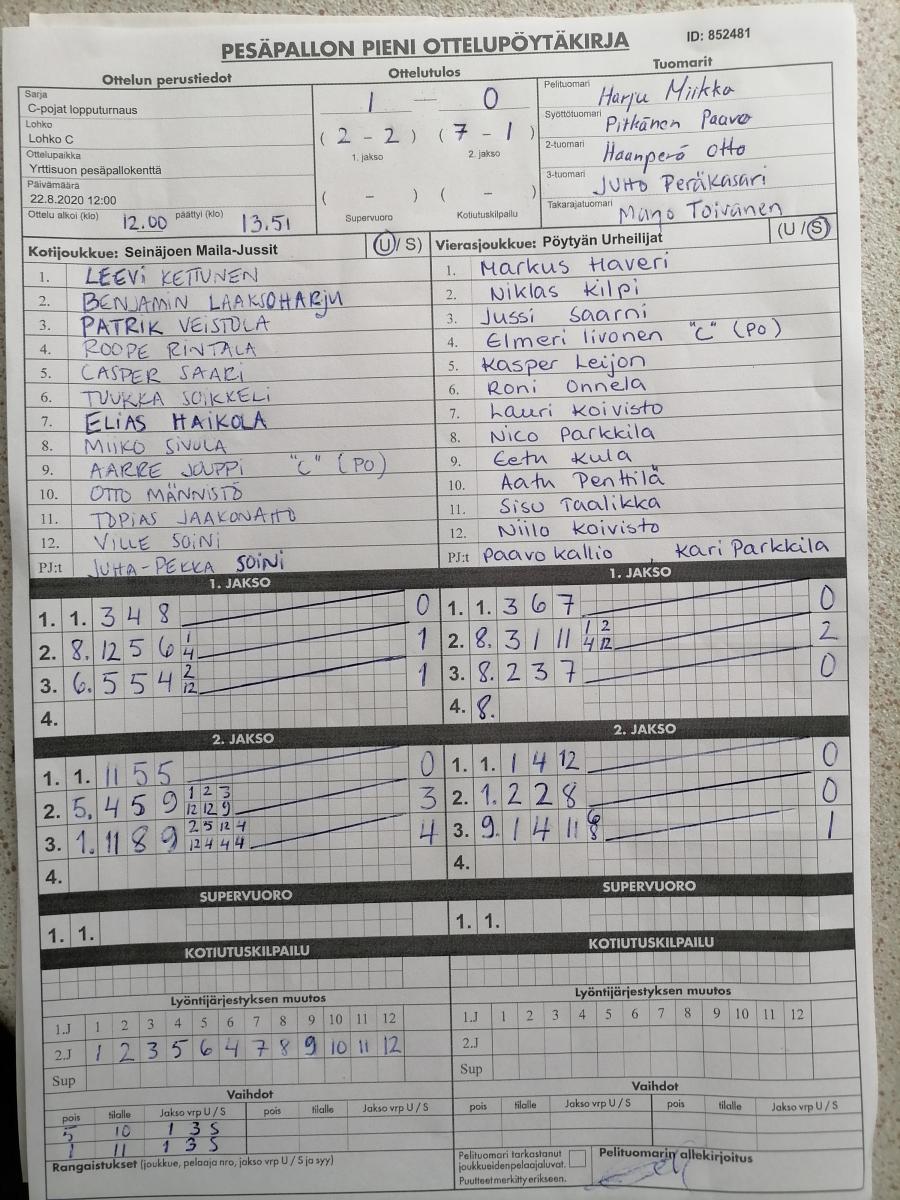 PESÄPALLON PIENI OTTELUPÖYTÄKIRJA
ID: 852481
Ottelun perustiedot
Sarja
C-pojat lopputurnaus
Lohko
Lohko C
Ottelupaikka
Yrttisuon pesäpallokenttä
Päivämäärä
22.8.2020 12:00
Ottelu alkoi (klo) 12.00 päättyi (klo) 13.51
Ottelutulos
1 — 0
( 2 - 2 ) ( 7 - 1 )
1. jakso 2. jakso
( - ) ( - )
Supervuoro Kotiutuskilpailu
Tuomarit
Pelituomari Harju Miikka
Syöttötuomari Pitkänen Paavo
2-tuomari Haanperä Otto
3-tuomari JUHO Peräkasari
Takarajatuomari Marjo Toivanen
Kotijoukkue: Seinäjoen Maila-Jussit (U / S)
1. LEEVi KETTUNEN
2. BENJAMiN LAAKSOHARJU
3. PATRiK VEiSTOLA
4. ROOPE RiNTALA
5. CASPER SAARi
6. TUUKKA SOiKKELi
7. ELiAS HAiKOLA
8. MiiKO SiVULA
9. AARRE JOUPPi "C" (PO)
10. OTTO MÄNNiSTÖ
11. TOPiAS JAAKONAHO
12. ViLLE SOiNi
PJ:t JUHA-PEKKA SOiNi
Vierasjoukkue: Pöytyän Urheilijat (U / S)
1. Markus Haveri
2. Niklas Kilpi
3. Jussi Saarni
4. Elmeri Iivonen "C" (PO)
5. Kasper Leijon
6. Roni Onnela
7. Lauri Koivisto
8. Nico Parkkila
9. Eetu Kula
10. Aatu Penttilä
11. Sisu Taalikka
12. Niilo Koivisto
PJ:t Paavo Kallio , Kari Parkkila
1. JAKSO
1. 1. 3 4 8 0
2. 8. 12 5 6 1/4 1
3. 6. 5 5 4 2/12 1
4.
1. JAKSO
1. 1. 3 6 7 0
2. 8. 3 1 11 1/4 2/12 2
3. 8. 2 3 7 0
4. 8.
2. JAKSO
1. 1. 11 5 5 0
2. 5. 4 5 9 1/12 2/12 3/9 3
3. 1. 11 8 9 2/12 5/4 12/4 4/4 4
4.
2. JAKSO
1. 1. 1 4 12 0
2. 1. 2 2 8 0
3. 9. 1 4 11 6/8 1
4.
SUPERVUORO
1. 1.
SUPERVUORO
1. 1.
KOTIUTUSKILPAILU
KOTIUTUSKILPAILU
Lyöntijärjestyksen muutos
1.J 1 2 3 4 5 6 7 8 9 10 11 12
2.J 1 2 3 5 6 4 7 8 9 10 11 12
Sup
Lyöntijärjestyksen muutos
1.J 1 2 3 4 5 6 7 8 9 10 11 12
2.J
Sup
Vaihdot
pois tilalle Jakso vrp U / S pois tilalle Jakso vrp U / S
5 10 1 3 S
1 11 1 3 S
Vaihdot
pois tilalle Jakso vrp U / S pois tilalle Jakso vrp U / S
Rangaistukset (joukkue, pelaaja nro, jakso vrp U / S ja syy)
Pelituomari tarkastanut
joukkueidenpelaajaluvat.
Puutteet merkitty erikseen.
Pelituomarin allekirjoitus